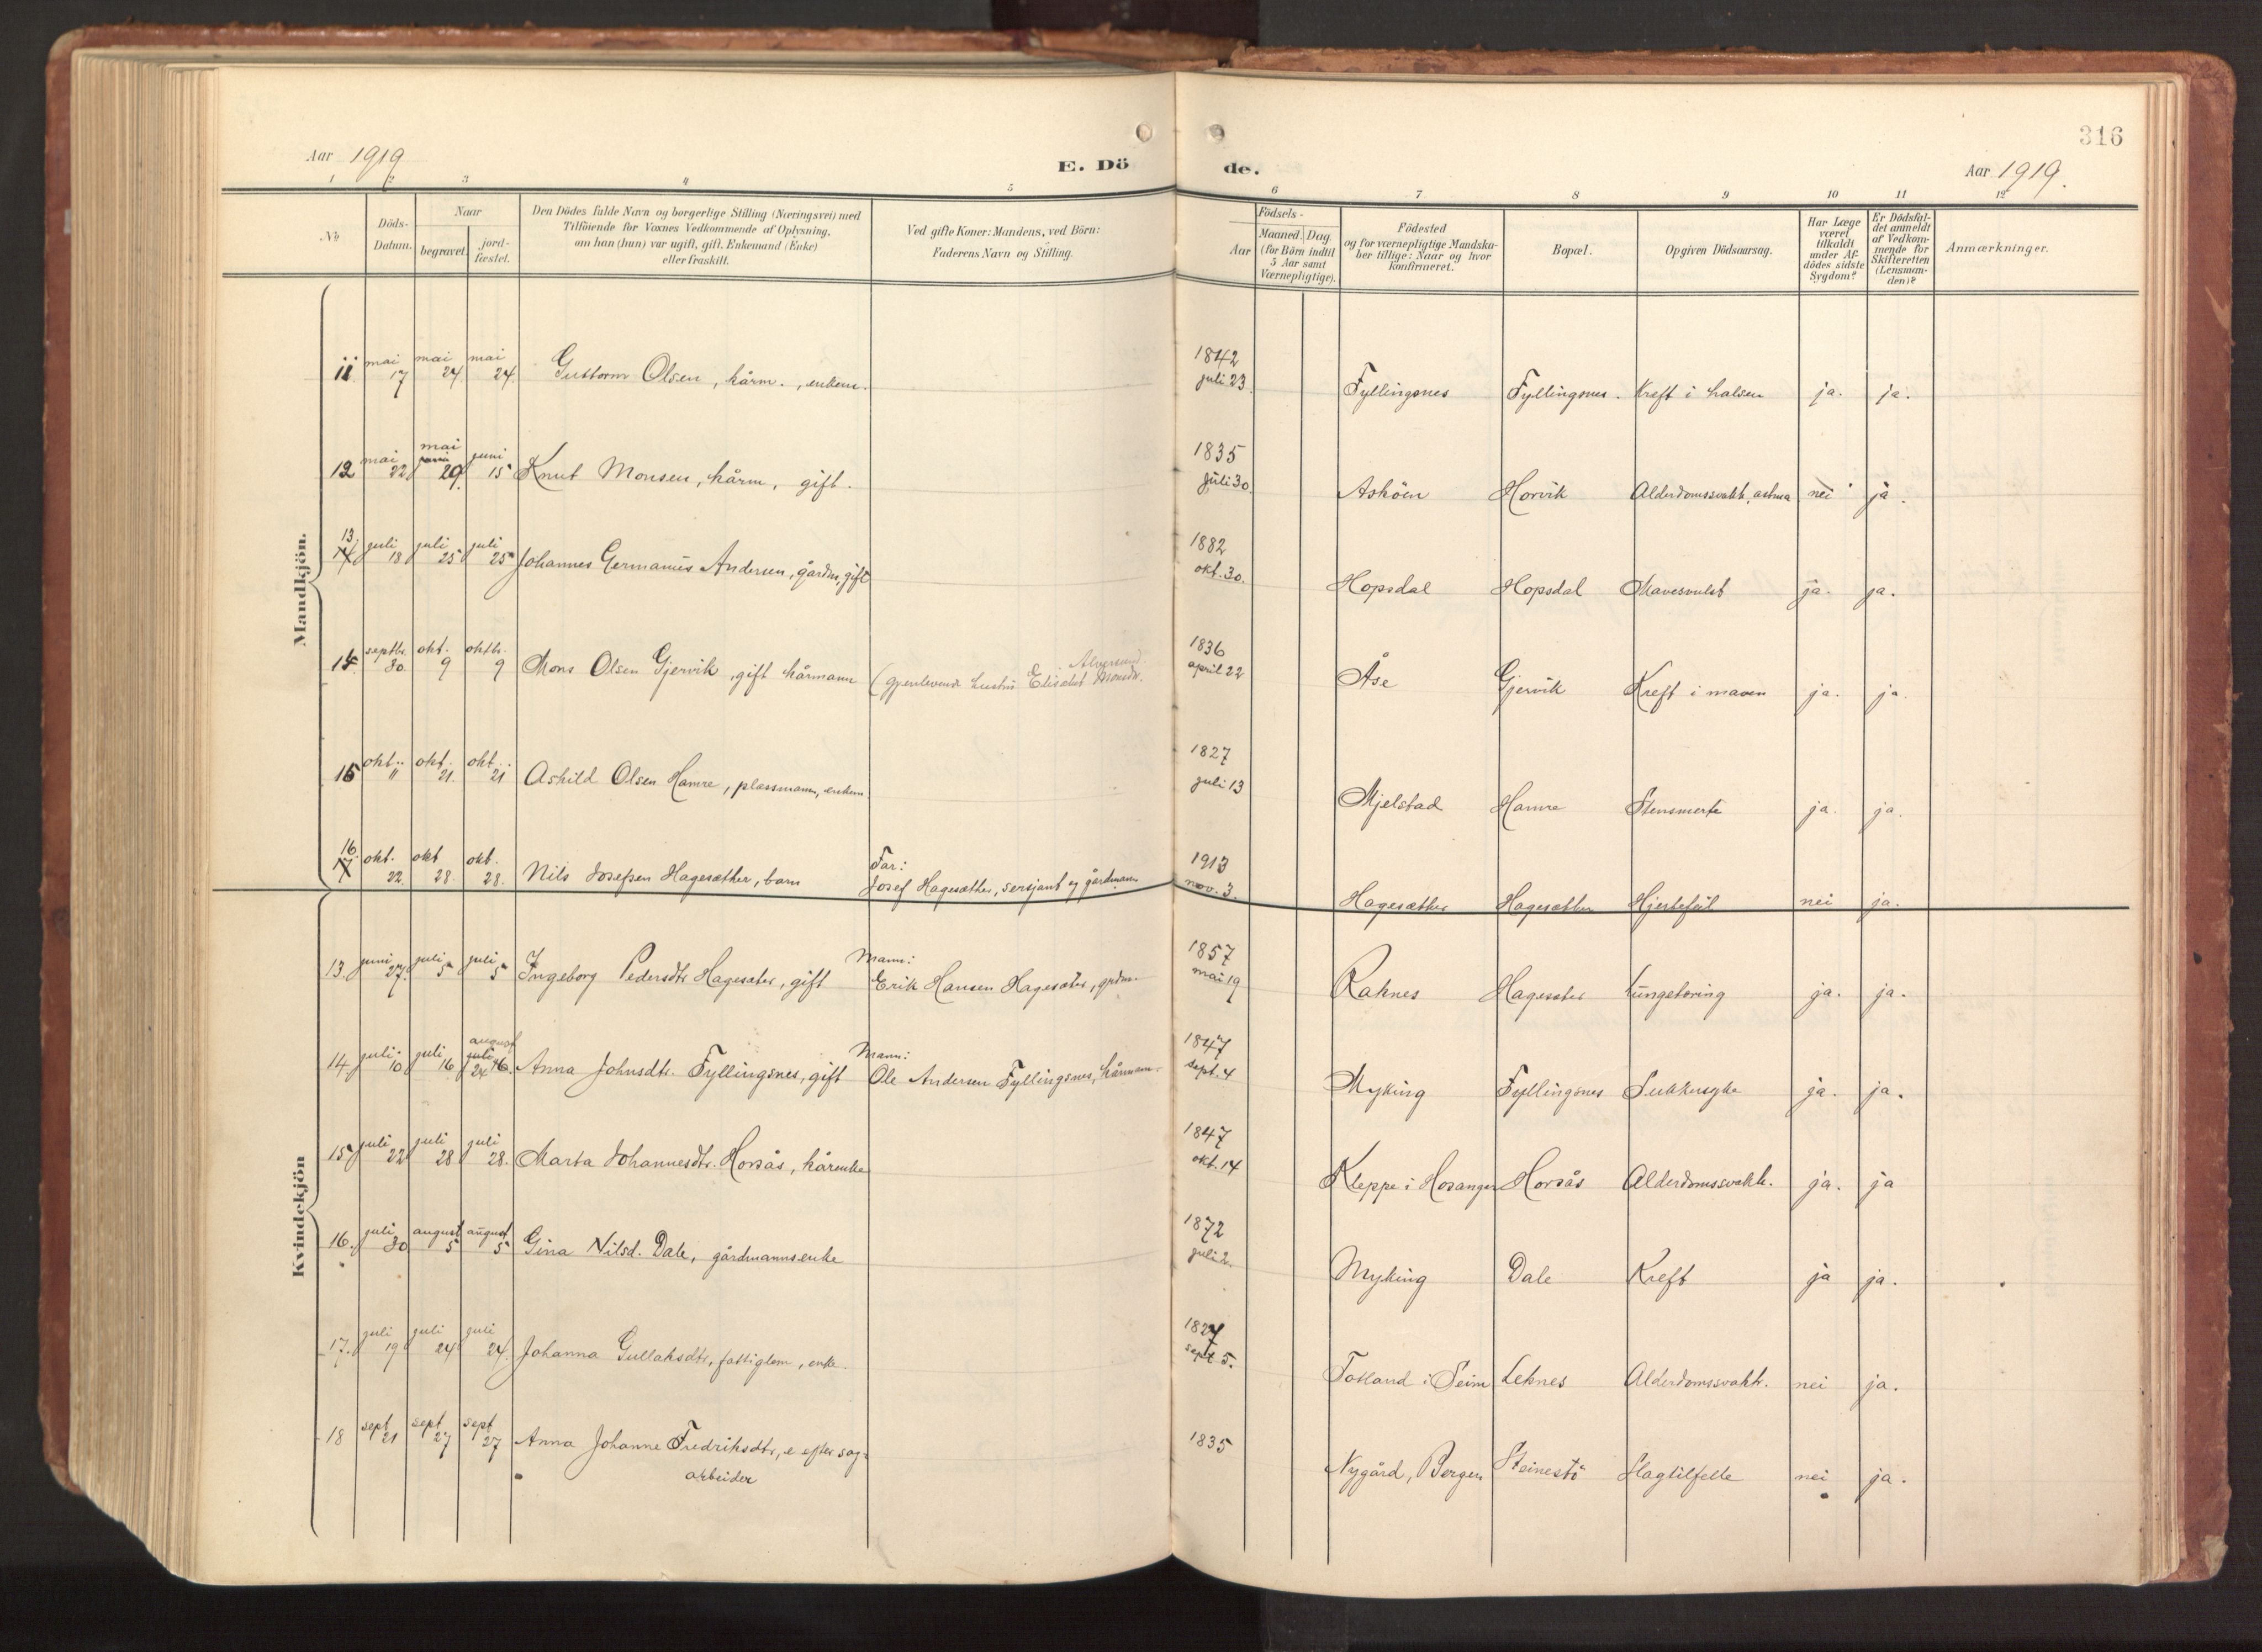 316
Aar 1919
E. Dö
de.
Aar 1919.
1 2 3 4 5 6 7 8 9 10 11 12
No
Döds-Datum.
Naar
begravet.
jord-fæstet.
Den Dödes fulde Navn og borgerlige Stilling (Næringsvei) med
Tilföiende for Voxnes Vedkommende af Oplysning,
om han (hun) var ugift, gift, Enkemand (Enke)
eller fraskilt.
Ved gifte Koner: Mandens, ved Börn:
Faderens Navn og Stilling.
Födsels-
Aar
Maaned. Dag.
(for Börn indtil
5 Aar samt
Værnepligtige).
Födested
og for værnepligtige Mandska-
ber tillige: Naar og hvor
konfirmeret.
Bopæl.
Opgiven Dödsaarsag.
Har Læge
været
tilkaldt
under Af-
dödes sidste
Sygdom?
Er Dödsfal-
det anmeldt
af Vedkom-
mende for
Skifteretten
(Lensman-
den)?
Anmærkninger.
Mandkjön.
11 mai 17 mai 24 mai 24. Guttorm Olsen, kårm., enkem. 1842 juli 23. Fyllingsnes Fyllingsnes. Kreft i halsen ja. ja.
12 mai 22 mai 29. juni 15 Knut Monsen, kårm, gift. 1835 juli 30. Asköen Horvik Alderdomssvakh, astma nei ja.
13. juli 18 juli 25 juli 25 Johannes Germanius Andersen, gårdm, gift 1882 okt. 30. Hopsdal Hopsdal Mavesvulst ja. ja.
14. septbr. 30. okt. 9 oktbr. 9 Mons Olsen Gjervik, gift kårmann (gjenlevende hustru Elisabet Monsdtr. Alversund. 1836 april 22 Åse Gjervik Kreft i maven ja. ja.
15 okt. 11 okt. 21. okt. 21 Askild Olsen Hamre, plassmann, enkem. 1827 juli 13 Mjelstad Hamre Stensmerte ja. ja.
16. okt. 22. okt 28. okt. 28. Nils Josefsen Hagesæther, barn Far: Josef Hagesæther, sersjant og gårdmann 1913 nov. 3. Hagesæther Hagesæther Hjertefeil nei ja.
Kvindekjön
13. juni 27. juli 5 juli 5 Ingeborg Pedersdtr Hagesæter, gift Mann: Erik Hansen Hagesæter, grdm. 1857 mai 19 Raknes Hagesæter Lungetæring ja. ja.
14. juli 10 juli 16 august juli 24 16. Anna Johnsdtr. Fyllingsnes, gift Mann: Ole Andersen Fyllingsnes, kårmann. 1847 sept. 4 Myking Fyllingsnes Sukkersyke ja. ja.
15 juli 22 juli 28 juli 28. Marta Johannesdtr. Horsås, kårenke 1847 okt. 14 Kleppe i Hosanger Horsås Alderdomssvakh. ja. ja
16. juli 30 august 5 august 5 Gina Nilsd. Dale, gårdmannsenke 1872 juli 2. Myking Dale Kreft ja ja.
17. juli 19 juli 24 juli 24. Johanna Gullaksdtr, fattiglem, enke. 1827 sept 5. Totland i Seim Leknes Alderdomssvakh. nei ja.
18 sept 21 sept 27 sept 27 Anna Johanne Fredriksdtr, e. efter sag-
arbeider 1835 Nygård, Bergen Steinestö Slagtilfelle nei ja.